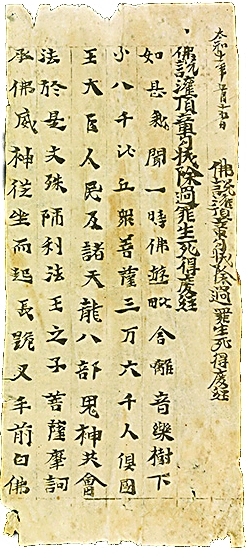 太和十一年五月十五日
佛說灌頂章句拔除過罪生死得度經
佛說灌頂章句拔除過罪生死得度經
如是我聞一時佛遊毗舍離音樂樹下
小八千比丘眾菩薩三万六千人俱國
王大臣人民及諸天龍八部鬼神共會
法於是文殊師利法王之子菩薩摩訶
承佛威神從坐而起長跪叉手前白佛